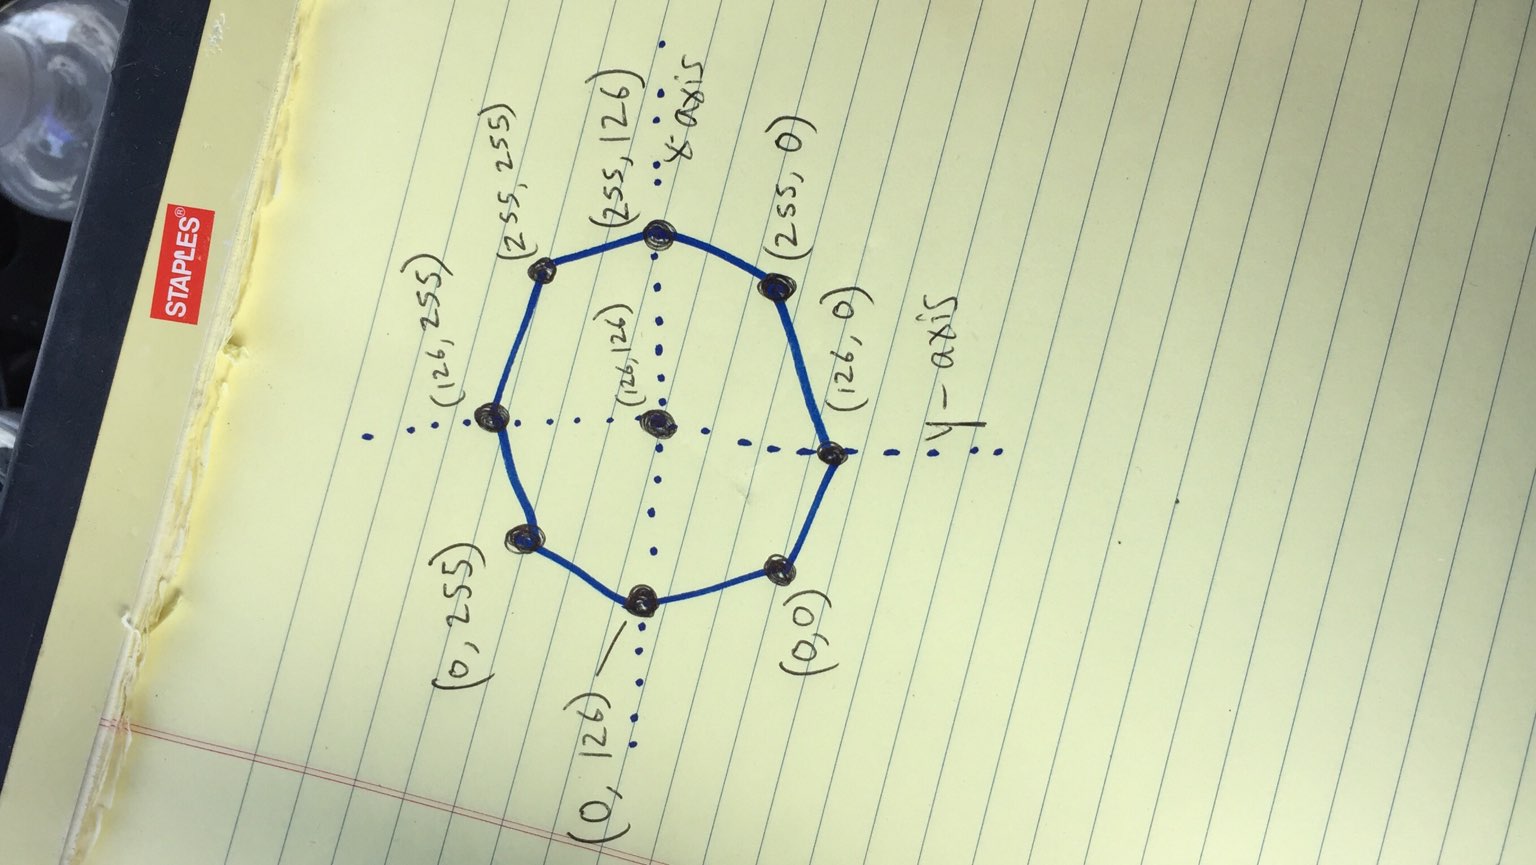 STAPLES®
(126,255)
(0, 255)
(255,255)
(0, 126)
(126,126)
(255,126)
x-axis
(0,0)
(255, 0)
(126, 0)
y-axis